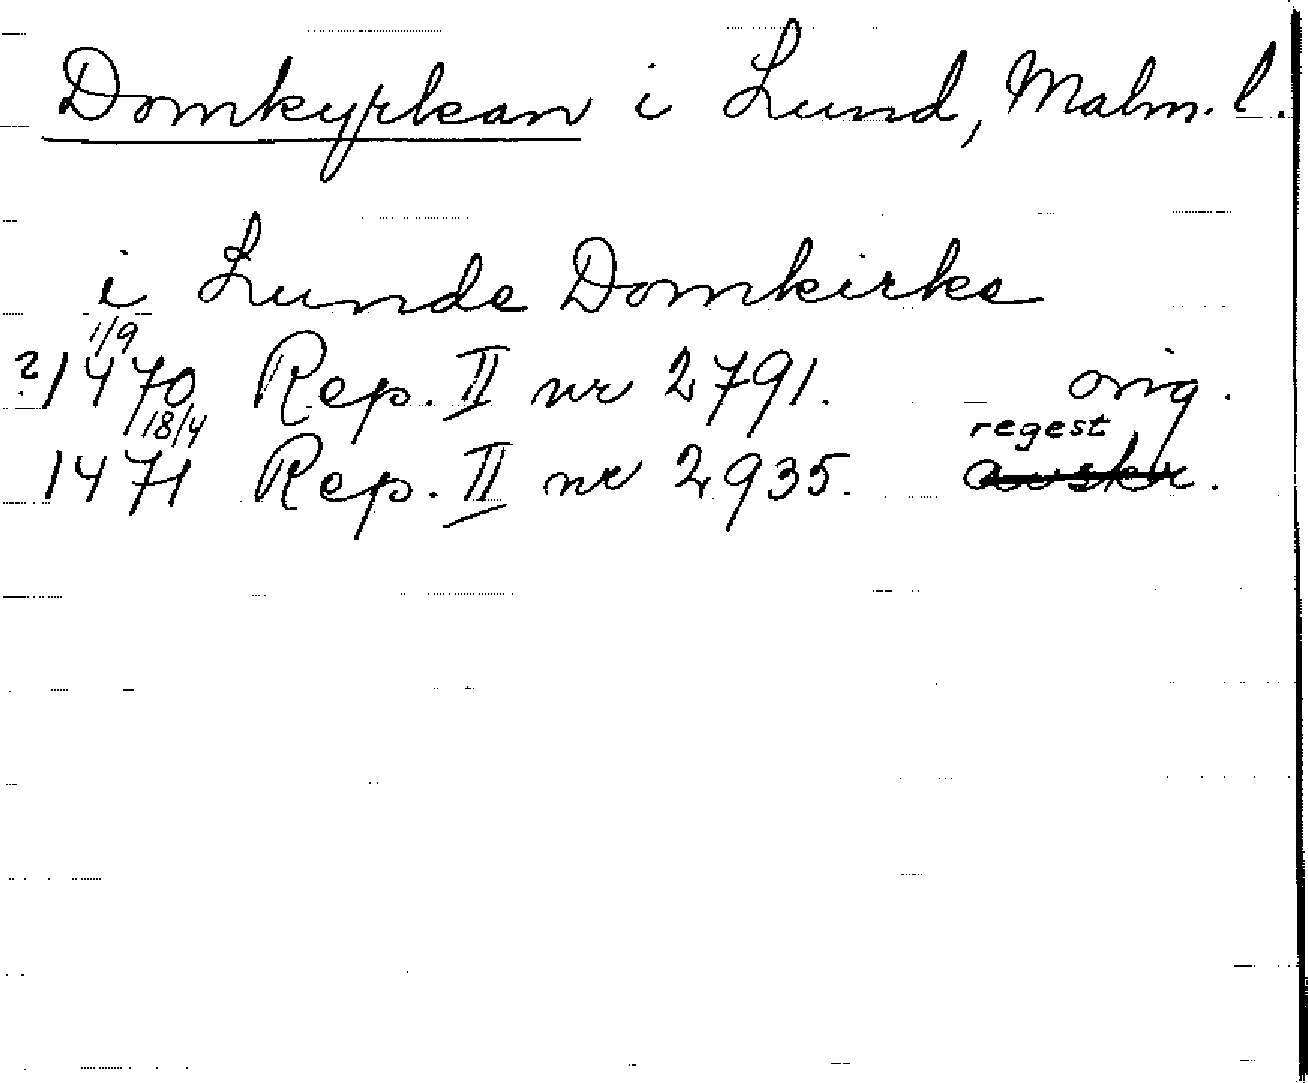 Domkyrkan i Lund, Malm. l.
i Lunde Domkirke
1/9
?1470 Rep. II nr 2791. orig.
18/4 regest
1471 Rep. II nr 2935. avskr.